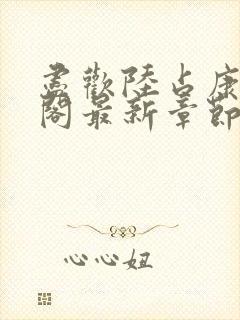 尽歡陸占康
閣最新章節
心心妞